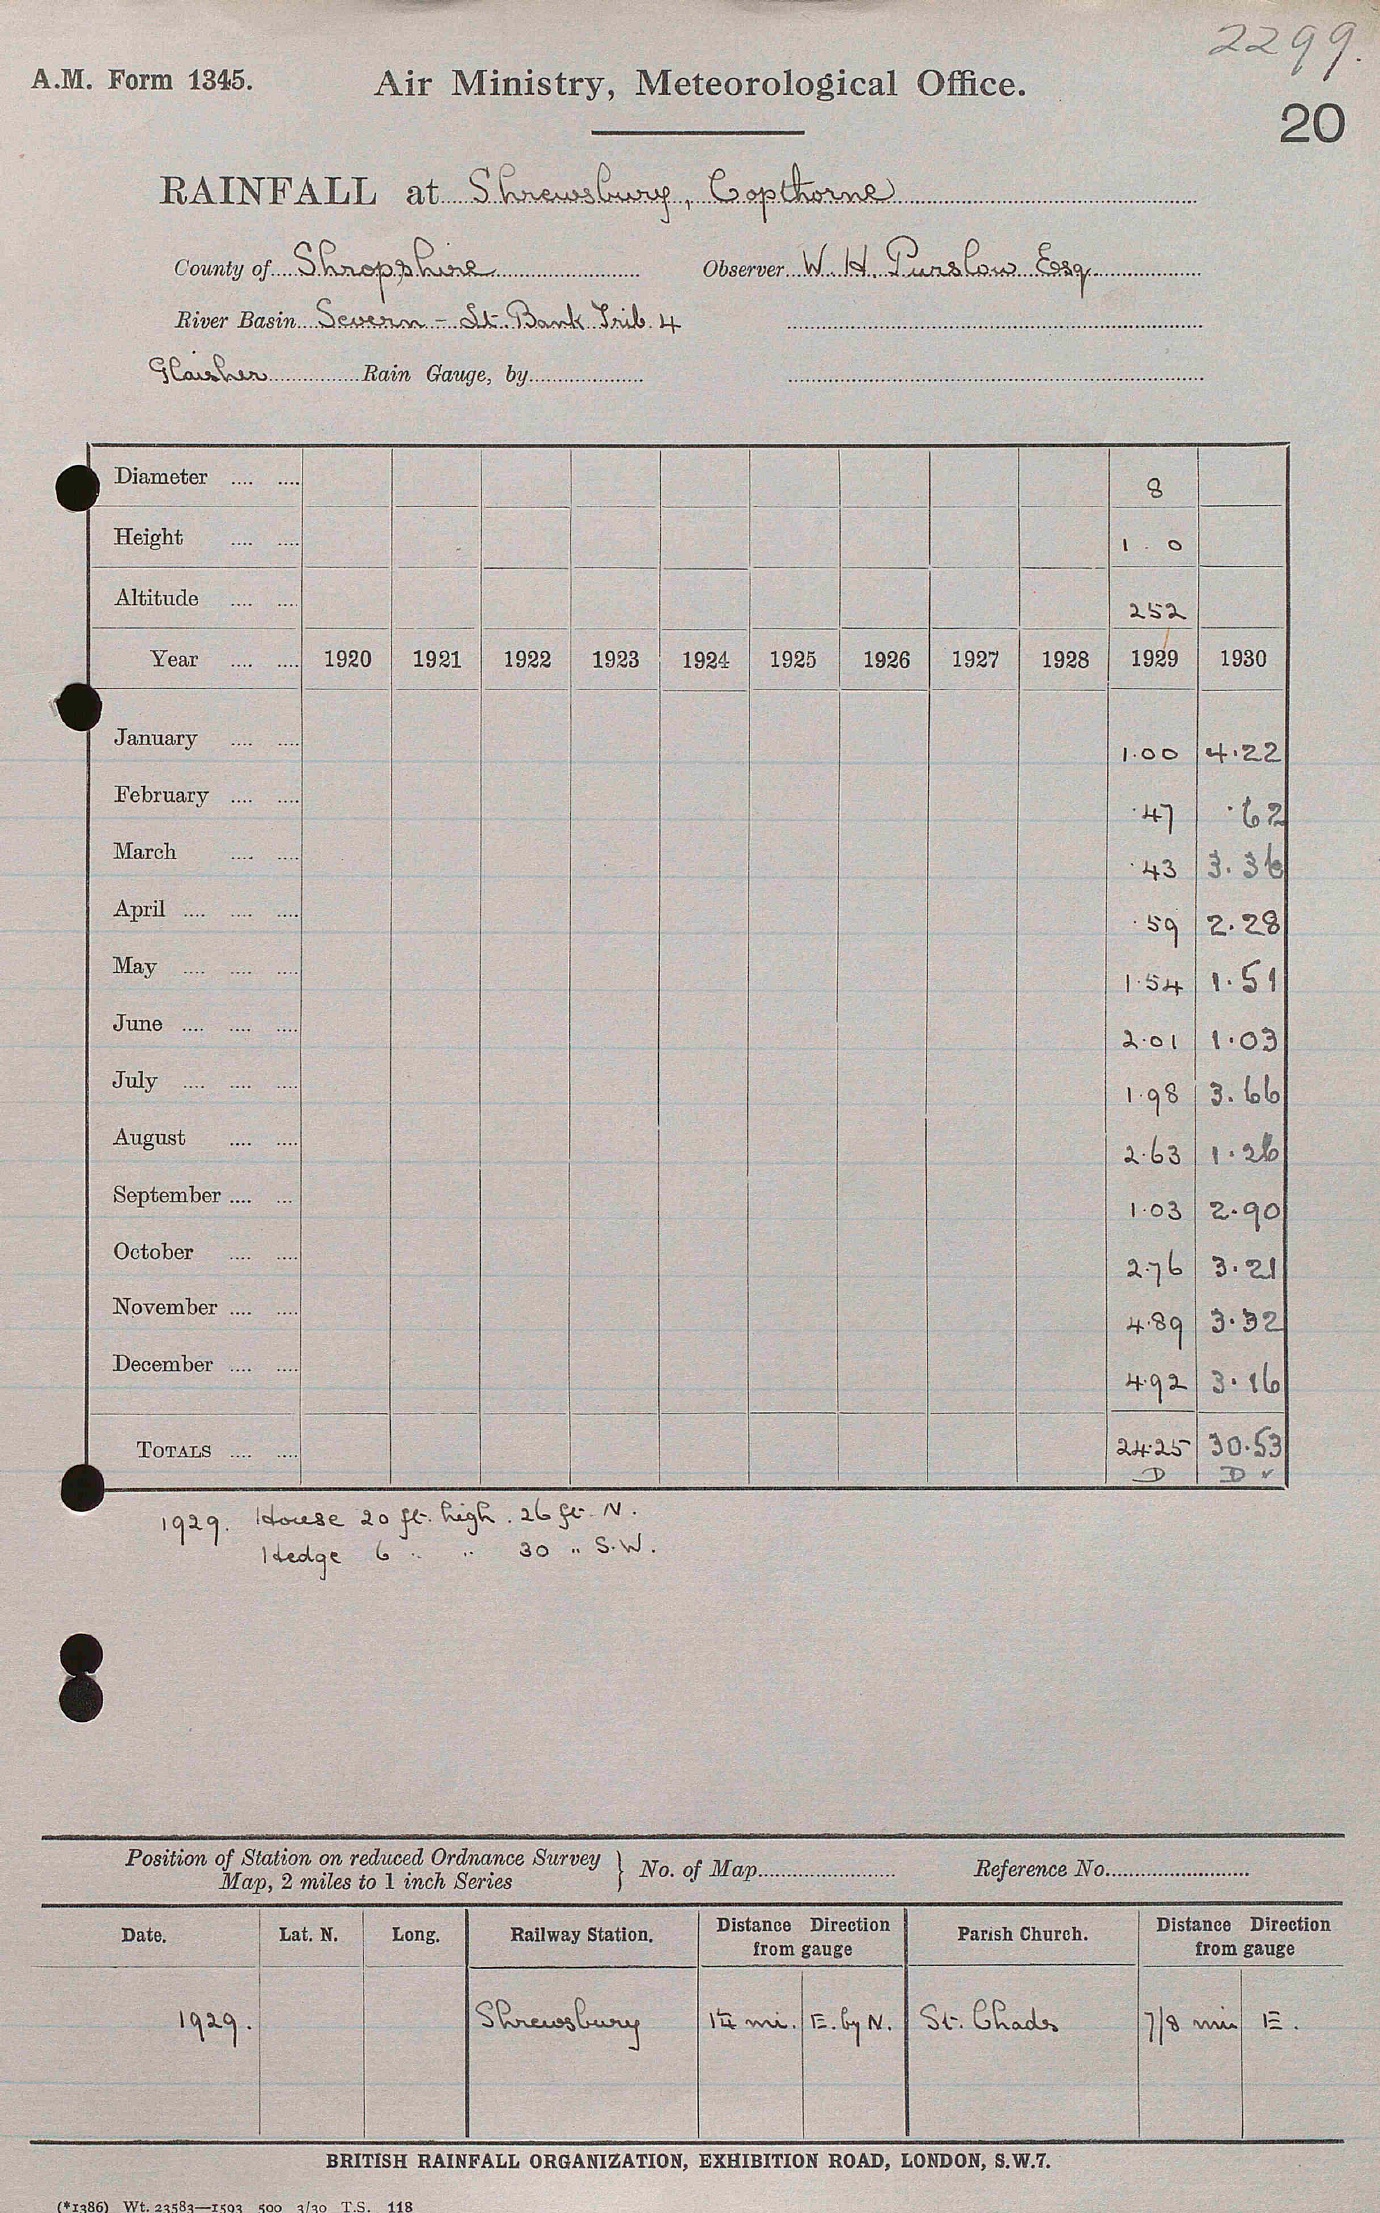 2299.
A.M. Form 1345. Air Ministry, Meteorological Office.
20
RAINFALL at Shrewsbury, Copthorne
County of Shropshire Observer W. H. Purslow Esq.
River Basin Severn - Lt. Bank Trib. 4
Glaisher Rain Gauge, by
Diameter .... .... 8
Height .... .... 1 . 0
Altitude .... .... 252
Year .... .... 1920 1921 1922 1923 1924 1925 1926 1927 1928 1929 1930
January .... .... 1.00 4.22
February .... .... .47 .62
March .... .... .43 3.36
April .... .... .... .59 2.28
May .... .... .... 1.54 1.51
June .... .... .... 2.01 1.03
July .... .... .... 1.98 3.66
August .... .... 2.63 1.26
September .... .... 1.03 2.90
October .... .... 2.76 3.21
November .... .... 4.89 3.32
December .... .... 4.92 3.16
TOTALS .... .... 24.25 30.53
D D ✓
1929. House 20 ft. high . 26 ft. N.
Hedge 6 " " 30 " S.W.
Position of Station on reduced Ordnance Survey
Map, 2 miles to 1 inch Series } No. of Map Reference No.
Date. Lat. N. Long. Railway Station. Distance Direction from gauge Parish Church. Distance Direction from gauge
1929. Shrewsbury 1¼ mi. E. by N. St. Chads 7/8 mi E.
BRITISH RAINFALL ORGANIZATION, EXHIBITION ROAD, LONDON, S.W.7.
(*1386) Wt. 23583—1593 500 3/30 T.S. 118